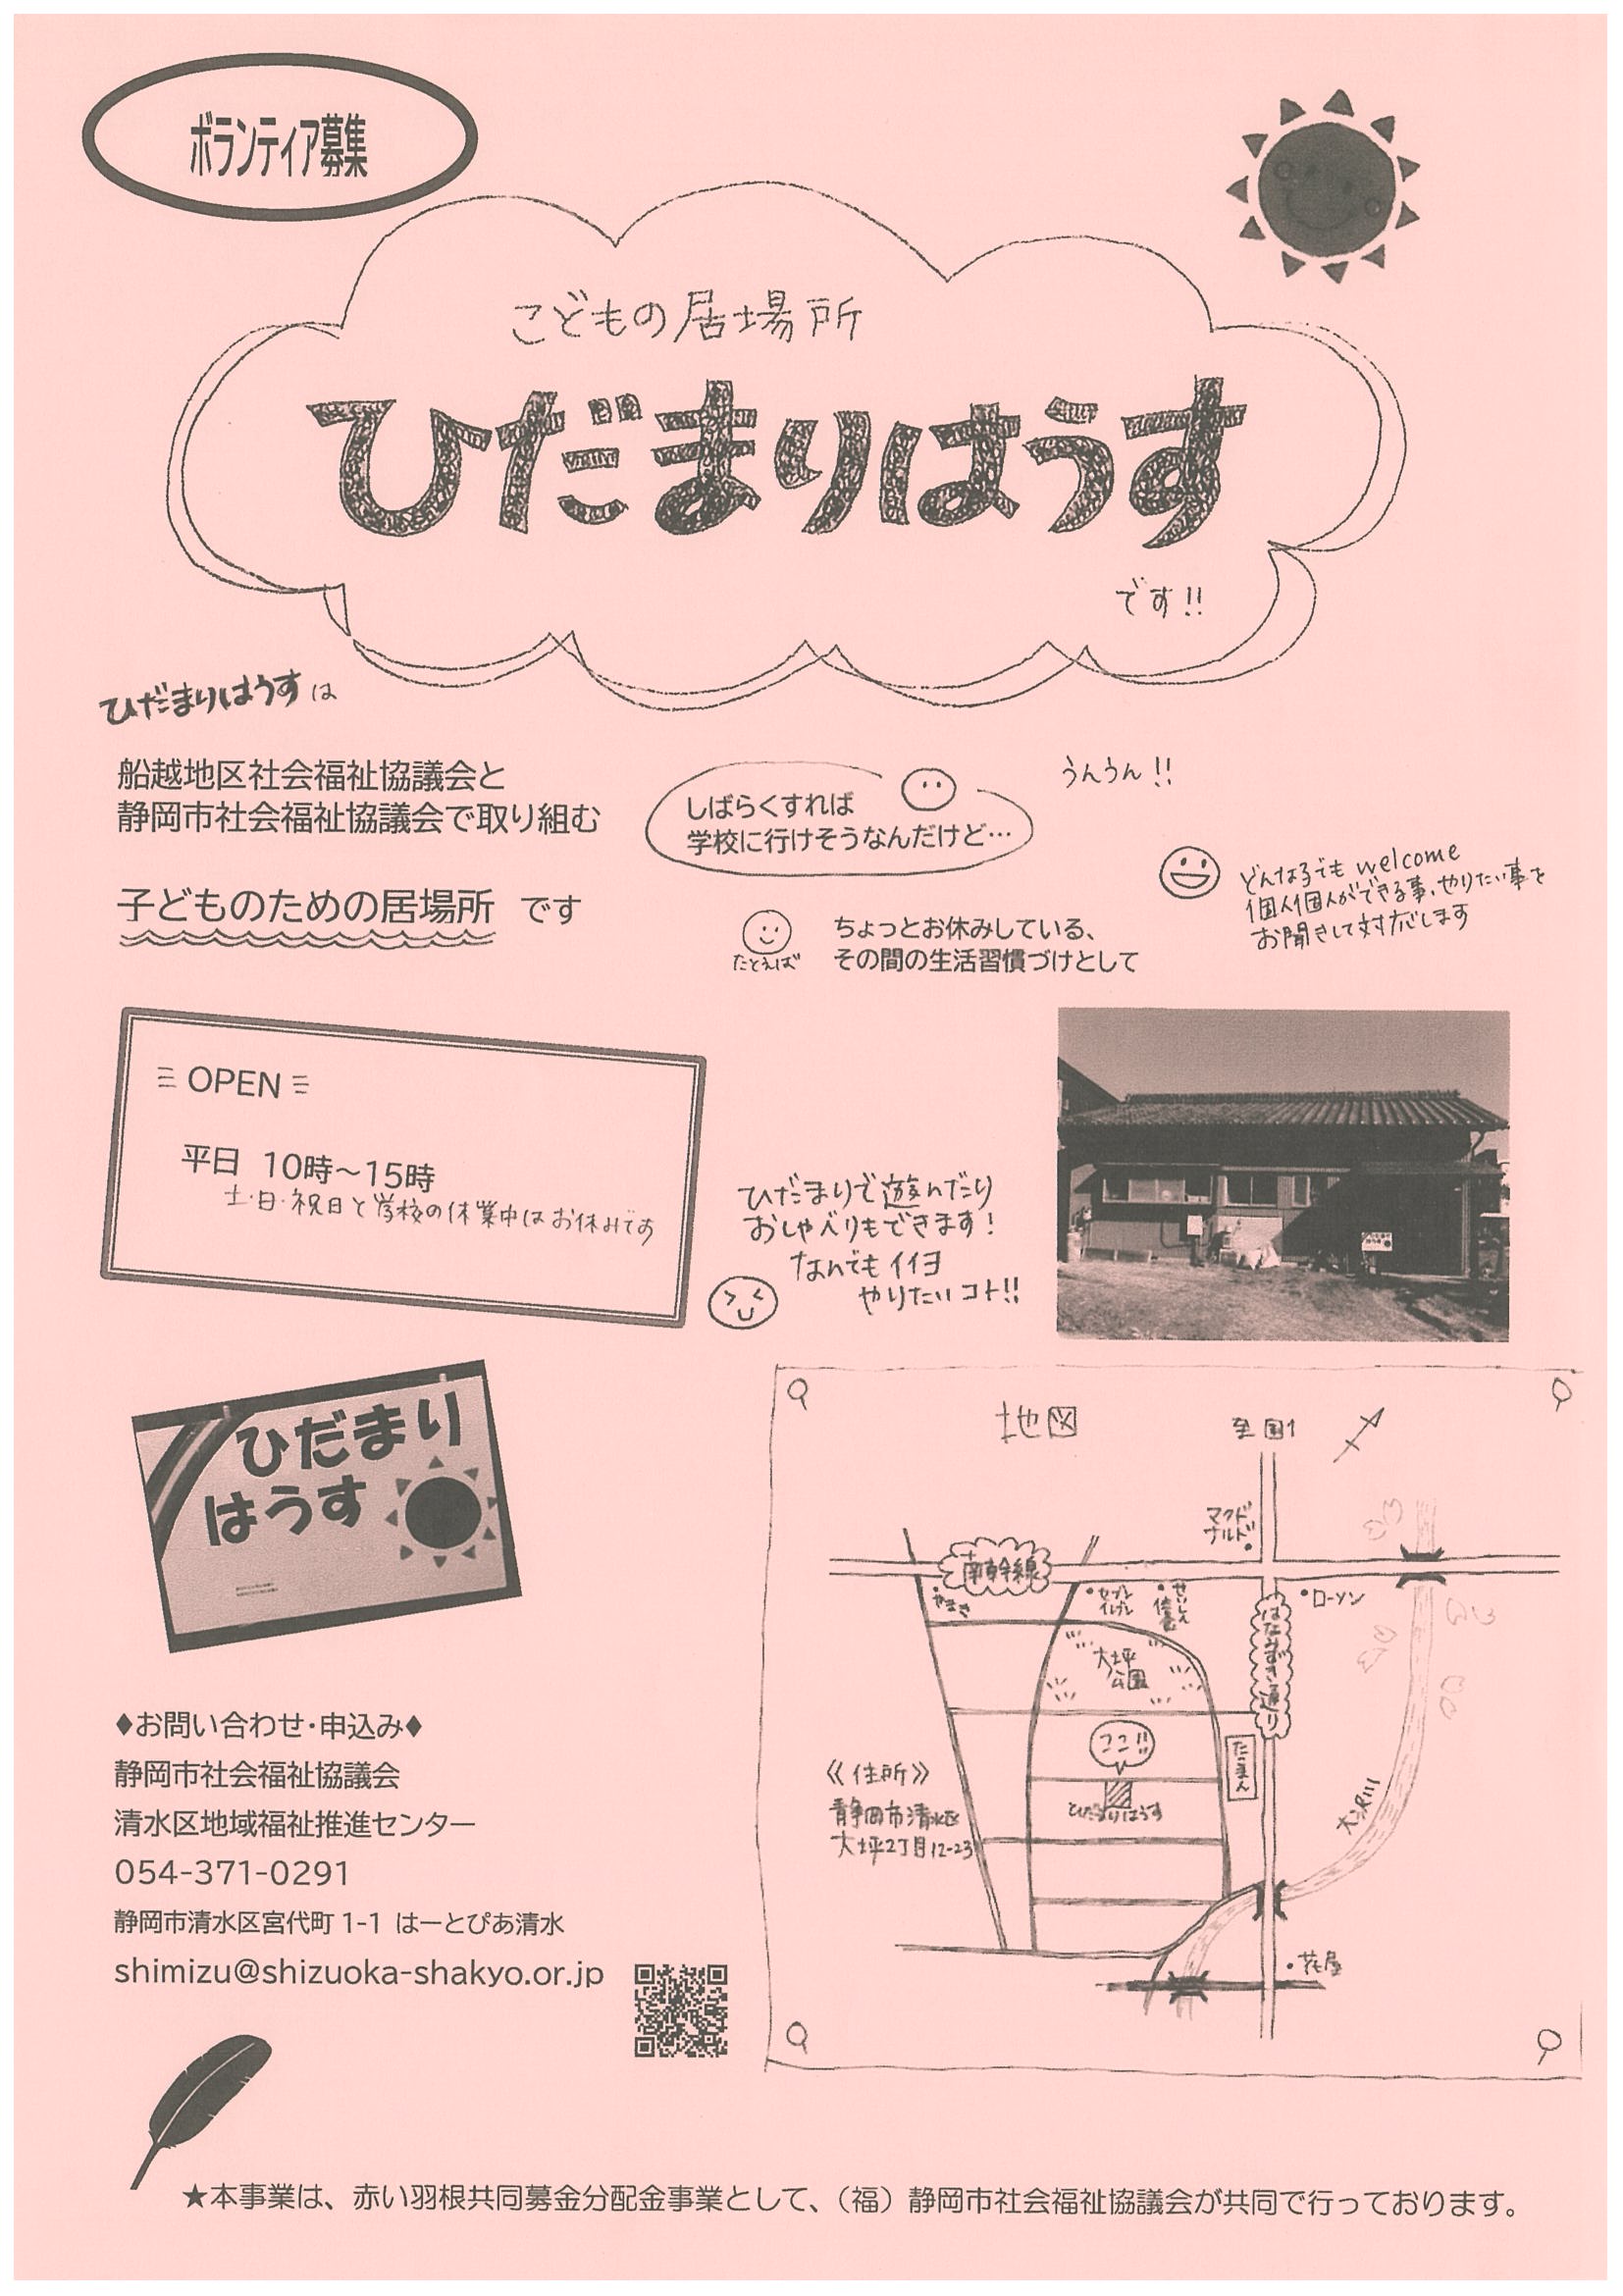 ボランティア募集
こどもの居場所
ひだまりはうす
です!!
ひだまりはうすは
船越地区社会福祉協議会と
静岡市社会福祉協議会で取り組む
子どものための居場所 です
しばらくすれば
学校に行けそうなんだけど…
うんうん!!
たとえば
ちょっとお休みしている、
その間の生活習慣づけとして
どんな子でも welcome
個人個人ができる事、やりたい事を
お聞きして対応します
OPEN
平日 10時~15時
土・日・祝日と学校の休業中はお休みです
ひだまりで遊んだり
おしゃべりもできます!
なんでもイイヨ
やりたいコト!!
ひだまり
はうす
地図
至国1
マクド
ナルド
南幹線
やまき
セブン
イレブン
せいしん
信金
ローソン
はなみずき通り
大坪
公園
ココ!!
ひだまりはうす
たこまん
大沢川
花屋
《住所》
静岡市清水区
大坪2丁目12-23
♦お問い合わせ・申込み♦
静岡市社会福祉協議会
清水区地域福祉推進センター
054-371-0291
静岡市清水区宮代町 1-1 はーとぴあ清水
shimizu@shizuoka-shakyo.or.jp
★本事業は、赤い羽根共同募金分配金事業として、（福）静岡市社会福祉協議会が共同で行っております。